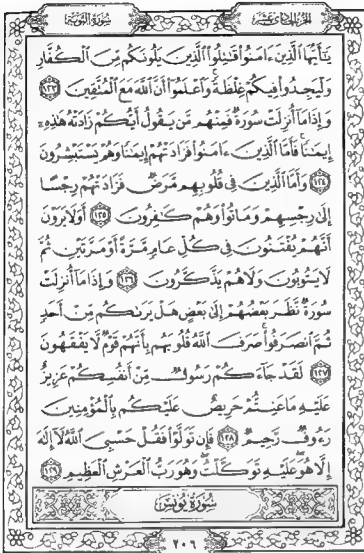 سُورَةُ التَّوْبَةِ
الجُزْءُ الحَادِي عَشَرَ
يَٰٓأَيُّهَا ٱلَّذِينَ ءَامَنُوا۟ قَٰتِلُوا۟ ٱلَّذِينَ يَلُونَكُم مِّنَ ٱلْكُفَّارِ
وَلْيَجِدُوا۟ فِيكُمْ غِلْظَةً ۚ وَٱعْلَمُوٓا۟ أَنَّ ٱللَّهَ مَعَ ٱلْمُتَّقِينَ ١٢٣
وَإِذَا مَآ أُنزِلَتْ سُورَةٌ فَمِنْهُم مَّن يَقُولُ أَيُّكُمْ زَادَتْهُ هَٰذِهِۦٓ
إِيمَٰنًا ۚ فَأَمَّا ٱلَّذِينَ ءَامَنُوا۟ فَزَادَتْهُمْ إِيمَٰنًا وَهُمْ يَسْتَبْشِرُونَ
١٢٤ وَأَمَّا ٱلَّذِينَ فِى قُلُوبِهِم مَّرَضٌ فَزَادَتْهُمْ رِجْسًا
إِلَىٰ رِجْسِهِمْ وَمَاتُوا۟ وَهُمْ كَٰفِرُونَ ١٢٥ أَوَلَا يَرَوْنَ
أَنَّهُمْ يُفْتَنُونَ فِى كُلِّ عَامٍ مَّرَّةً أَوْ مَرَّتَيْنِ ثُمَّ
لَا يَتُوبُونَ وَلَا هُمْ يَذَّكَّرُونَ ١٢٦ وَإِذَا مَآ أُنزِلَتْ
سُورَةٌ نَّظَرَ بَعْضُهُمْ إِلَىٰ بَعْضٍ هَلْ يَرَىٰكُم مِّنْ أَحَدٍ
ثُمَّ ٱنصَرَفُوا۟ ۚ صَرَفَ ٱللَّهُ قُلُوبَهُم بِأَنَّهُمْ قَوْمٌ لَّا يَفْقَهُونَ
١٢٧ لَقَدْ جَآءَكُمْ رَسُولٌ مِّنْ أَنفُسِكُمْ عَزِيزٌ
عَلَيْهِ مَا عَنِتُّمْ حَرِيصٌ عَلَيْكُم بِٱلْمُؤْمِنِينَ
رَءُوفٌ رَّحِيمٌ ١٢٨ فَإِن تَوَلَّوْا۟ فَقُلْ حَسْبِىَ ٱللَّهُ لَآ إِلَٰهَ
إِلَّا هُوَ ۖ عَلَيْهِ تَوَكَّلْتُ ۖ وَهُوَ رَبُّ ٱلْعَرْشِ ٱلْعَظِيمِ ١٢٩
سُورَةُ يُونُسَ
٢٠٦